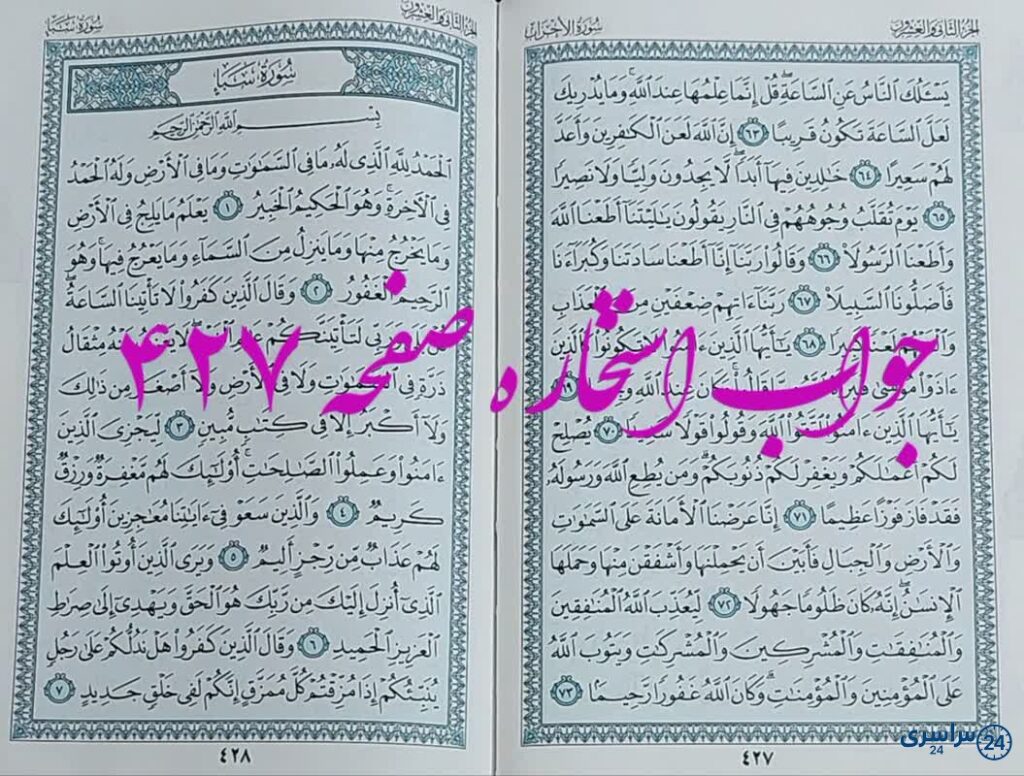 الجزء الثاني والعشرون
سورة الأحزاب
يَسْـَٔلُكَ ٱلنَّاسُ عَنِ ٱلسَّاعَةِ ۖ قُلْ إِنَّمَا عِلْمُهَا عِندَ ٱللَّهِ ۚ وَمَا يُدْرِيكَ
لَعَلَّ ٱلسَّاعَةَ تَكُونُ قَرِيبًا ٦٣ إِنَّ ٱللَّهَ لَعَنَ ٱلْكَٰفِرِينَ وَأَعَدَّ
لَهُمْ سَعِيرًا ٦٤ خَٰلِدِينَ فِيهَآ أَبَدًا ۖ لَّا يَجِدُونَ وَلِيًّا وَلَا نَصِيرًا
٦٥ يَوْمَ تُقَلَّبُ وُجُوهُهُمْ فِى ٱلنَّارِ يَقُولُونَ يَٰلَيْتَنَآ أَطَعْنَا ٱللَّهَ
وَأَطَعْنَا ٱلرَّسُولَا۠ ٦٦ وَقَالُوا۟ رَبَّنَآ إِنَّآ أَطَعْنَا سَادَتَنَا وَكُبَرَآءَنَا
فَأَضَلُّونَا ٱلسَّبِيلَا۠ ٦٧ رَبَّنَآ ءَاتِهِمْ ضِعْفَيْنِ مِنَ ٱلْعَذَابِ
وَٱلْعَنْهُمْ لَعْنًا كَبِيرًا ٦٨ يَٰٓأَيُّهَا ٱلَّذِينَ ءَامَنُوا۟ لَا تَكُونُوا۟ كَٱلَّذِينَ
ءَاذَوْا۟ مُوسَىٰ فَبَرَّأَهُ ٱللَّهُ مِمَّا قَالُوا۟ ۚ وَكَانَ عِندَ ٱللَّهِ وَجِيهًا ٦٩
يَٰٓأَيُّهَا ٱلَّذِينَ ءَامَنُوا۟ ٱتَّقُوا۟ ٱللَّهَ وَقُولُوا۟ قَوْلًا سَدِيدًا ٧٠ يُصْلِحْ
لَكُمْ أَعْمَٰلَكُمْ وَيَغْفِرْ لَكُمْ ذُنُوبَكُمْ ۗ وَمَن يُطِعِ ٱللَّهَ وَرَسُولَهُۥ
فَقَدْ فَازَ فَوْزًا عَظِيمًا ٧١ إِنَّا عَرَضْنَا ٱلْأَمَانَةَ عَلَى ٱلسَّمَٰوَٰتِ
وَٱلْأَرْضِ وَٱلْجِبَالِ فَأَبَيْنَ أَن يَحْمِلْنَهَا وَأَشْفَقْنَ مِنْهَا وَحَمَلَهَا
ٱلْإِنسَٰنُ ۖ إِنَّهُۥ كَانَ ظَلُومًا جَهُولًا ٧٢ لِّيُعَذِّبَ ٱللَّهُ ٱلْمُنَٰفِقِينَ
وَٱلْمُنَٰفِقَٰتِ وَٱلْمُشْرِكِينَ وَٱلْمُشْرِكَٰتِ وَيَتُوبَ ٱللَّهُ
عَلَى ٱلْمُؤْمِنِينَ وَٱلْمُؤْمِنَٰتِ ۗ وَكَانَ ٱللَّهُ غَفُورًا رَّحِيمًا ٧٣
٤٢٧
الجزء الثاني والعشرون
سورة سبأ
سُورَةُ سَبَإٍ
بِسْمِ ٱللَّهِ ٱلرَّحْمَٰنِ ٱلرَّحِيمِ
ٱلْحَمْدُ لِلَّهِ ٱلَّذِى لَهُۥ مَا فِى ٱلسَّمَٰوَٰتِ وَمَا فِى ٱلْأَرْضِ وَلَهُ ٱلْحَمْدُ
فِى ٱلْءَاخِرَةِ ۚ وَهُوَ ٱلْحَكِيمُ ٱلْخَبِيرُ ١ يَعْلَمُ مَا يَلِجُ فِى ٱلْأَرْضِ
وَمَا يَخْرُجُ مِنْهَا وَمَا يَنزِلُ مِنَ ٱلسَّمَآءِ وَمَا يَعْرُجُ فِيهَا ۚ وَهُوَ
ٱلرَّحِيمُ ٱلْغَفُورُ ٢ وَقَالَ ٱلَّذِينَ كَفَرُوا۟ لَا تَأْتِينَا ٱلسَّاعَةُ ۖ
قُلْ بَلَىٰ وَرَبِّى لَتَأْتِيَنَّكُمْ عَٰلِمِ ٱلْغَيْبِ ۖ لَا يَعْزُبُ عَنْهُ مِثْقَالُ
ذَرَّةٍ فِى ٱلسَّمَٰوَٰتِ وَلَا فِى ٱلْأَرْضِ وَلَآ أَصْغَرُ مِن ذَٰلِكَ
وَلَآ أَكْبَرُ إِلَّا فِى كِتَٰبٍ مُّبِينٍ ٣ لِّيَجْزِىَ ٱلَّذِينَ
ءَامَنُوا۟ وَعَمِلُوا۟ ٱلصَّٰلِحَٰتِ ۚ أُو۟لَٰٓئِكَ لَهُم مَّغْفِرَةٌ وَرِزْقٌ
كَرِيمٌ ٤ وَٱلَّذِينَ سَعَوْ فِىٓ ءَايَٰتِنَا مُعَٰجِزِينَ أُو۟لَٰٓئِكَ
لَهُمْ عَذَابٌ مِّن رِّجْزٍ أَلِيمٌ ٥ وَيَرَى ٱلَّذِينَ أُوتُوا۟ ٱلْعِلْمَ
ٱلَّذِىٓ أُنزِلَ إِلَيْكَ مِن رَّبِّكَ هُوَ ٱلْحَقَّ وَيَهْدِىٓ إِلَىٰ صِرَٰطِ
ٱلْعَزِيزِ ٱلْحَمِيدِ ٦ وَقَالَ ٱلَّذِينَ كَفَرُوا۟ هَلْ نَدُلُّكُمْ عَلَىٰ رَجُلٍ
يُنَبِّئُكُمْ إِذَا مُزِّقْتُمْ كُلَّ مُمَزَّقٍ إِنَّكُمْ لَفِى خَلْقٍ جَدِيدٍ ٧
٤٢٨
جواب استخاره صفحه ۴۲۷
سراسری 24
24